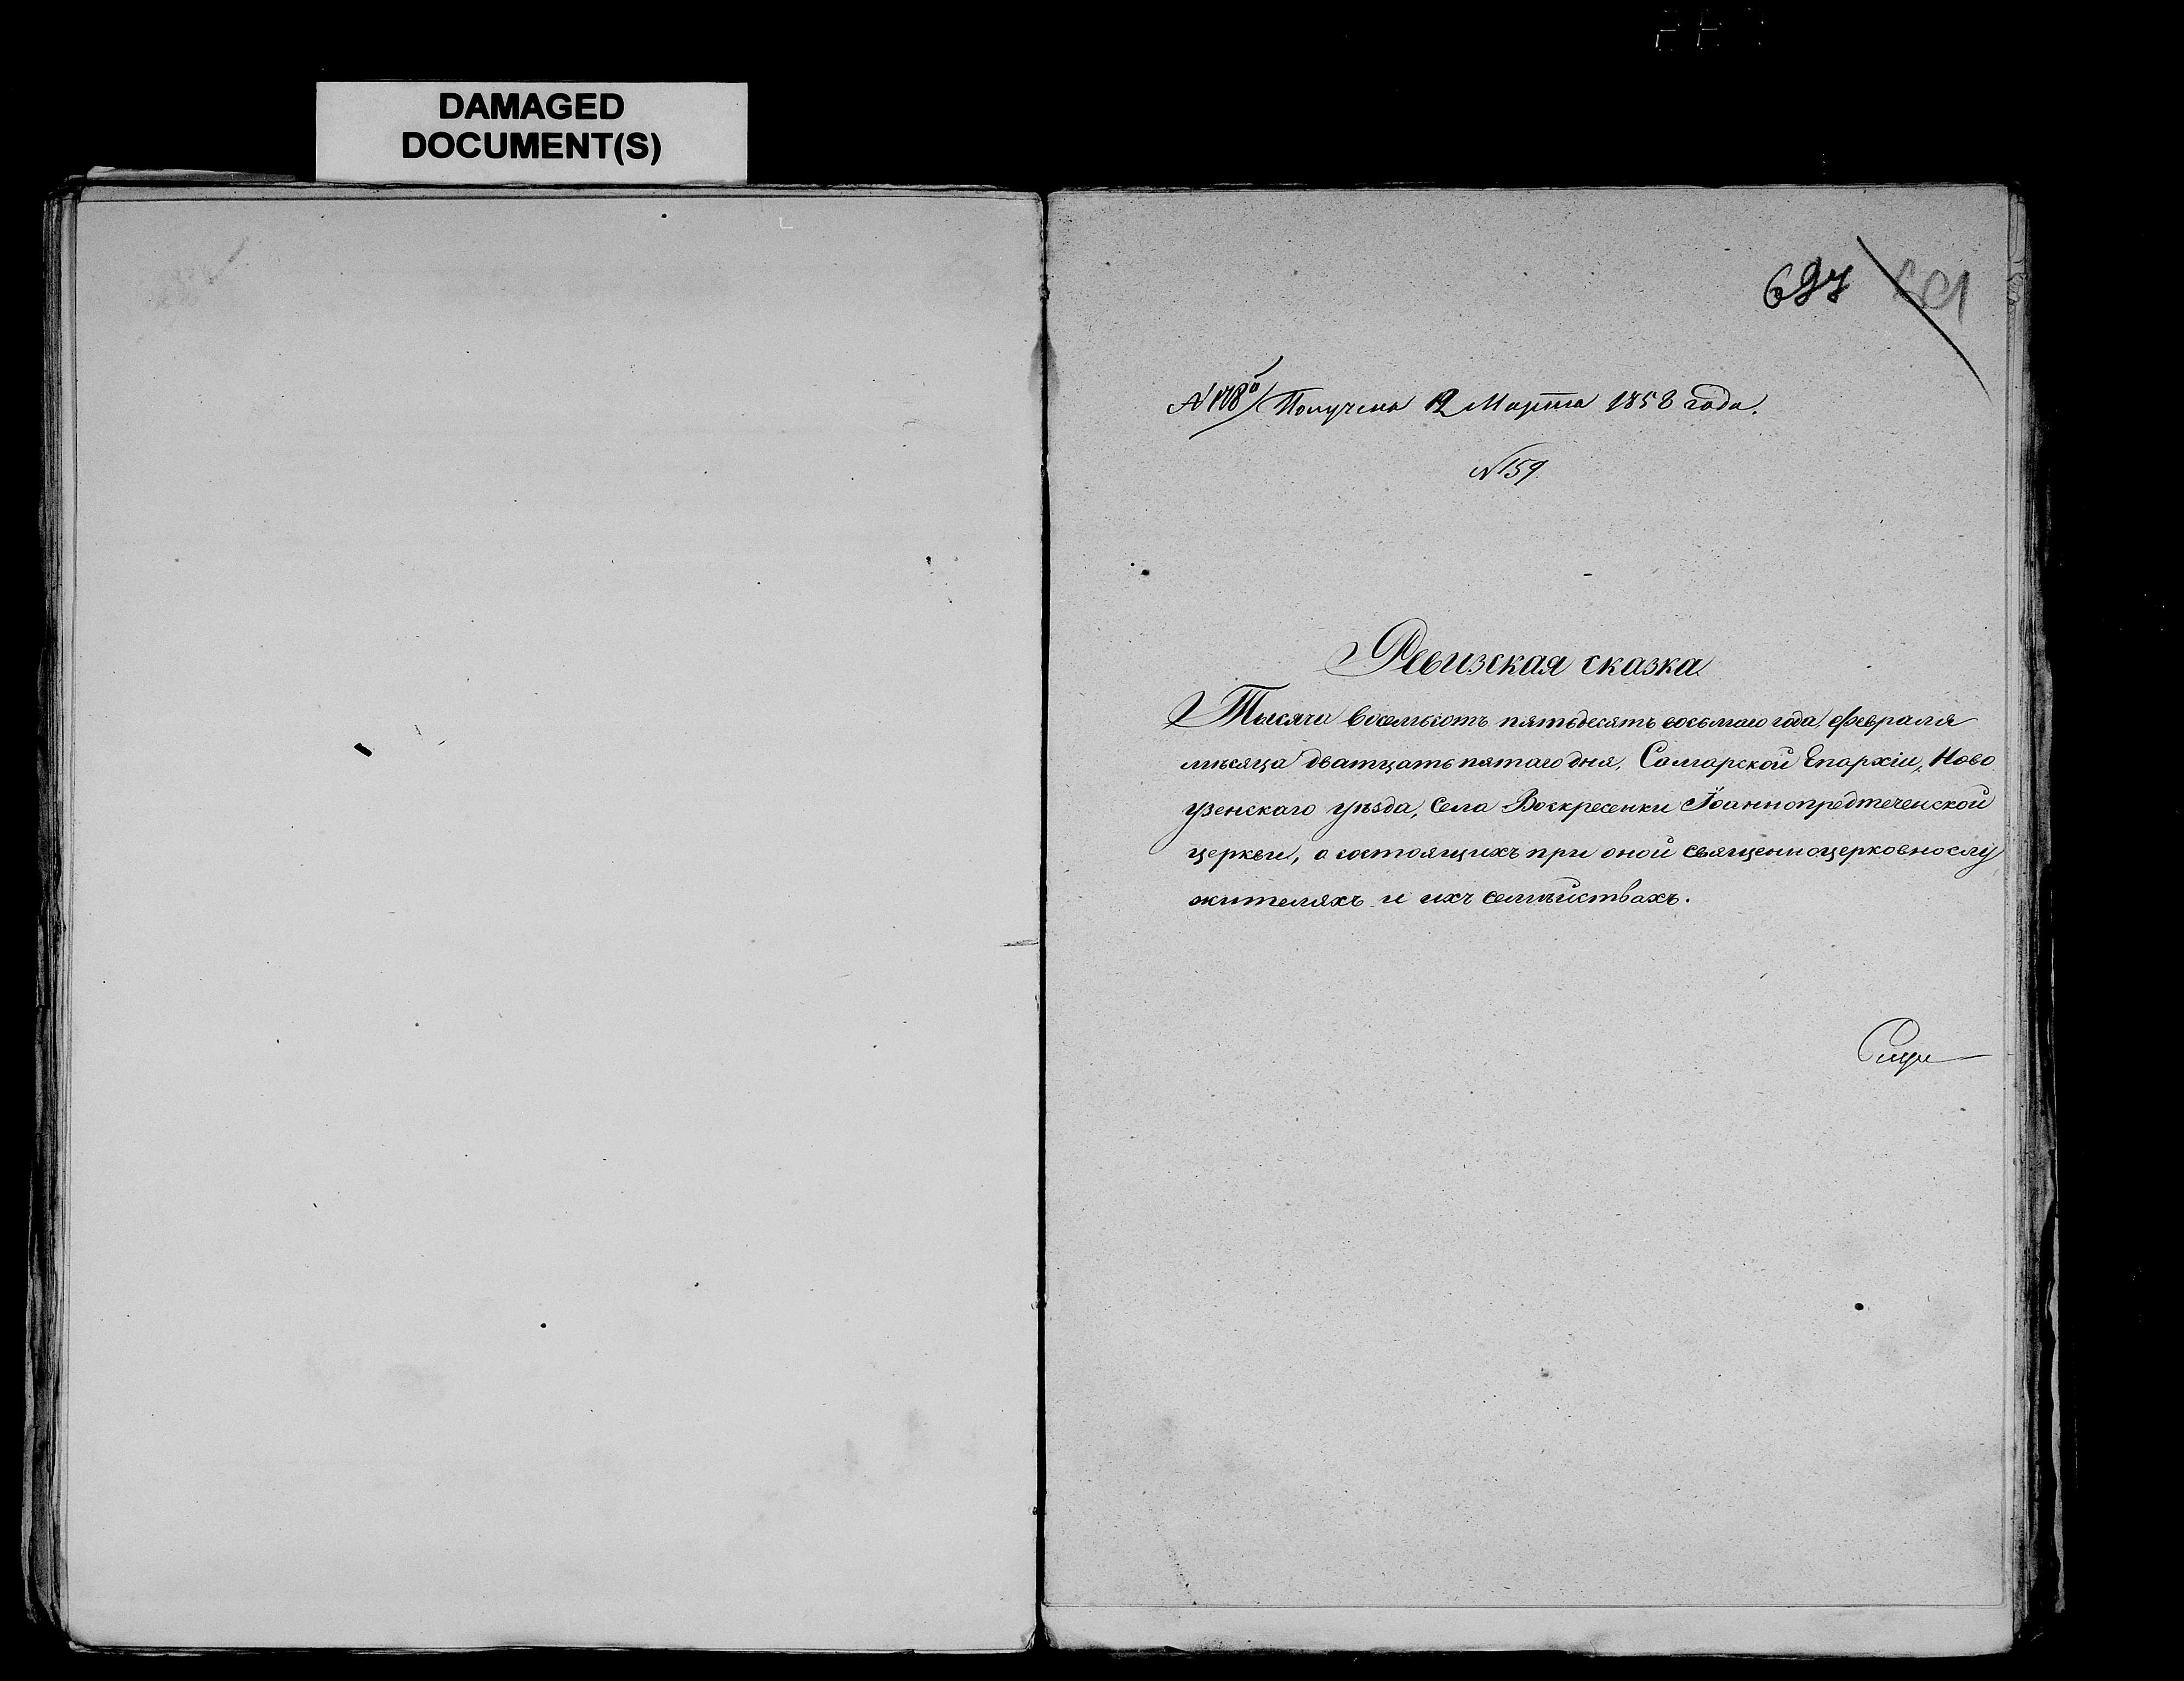 DAMAGED
DOCUMENT(S)
697
Получена 12 Марта 1858 года.
N 159
Ревизская сказка
Тысяча восемьсотъ пятьдесятъ восьмаго года, февраля
мѣсяца дватцать пятаго дня, Самарской Епархіи, Ново
узенскаго уѣзда, Села Воскресенки Іоаннопредтеченской
церкви, о состоящихъ при оной священноцерковнослу
жителяхъ и ихъ семѣйствахъ.